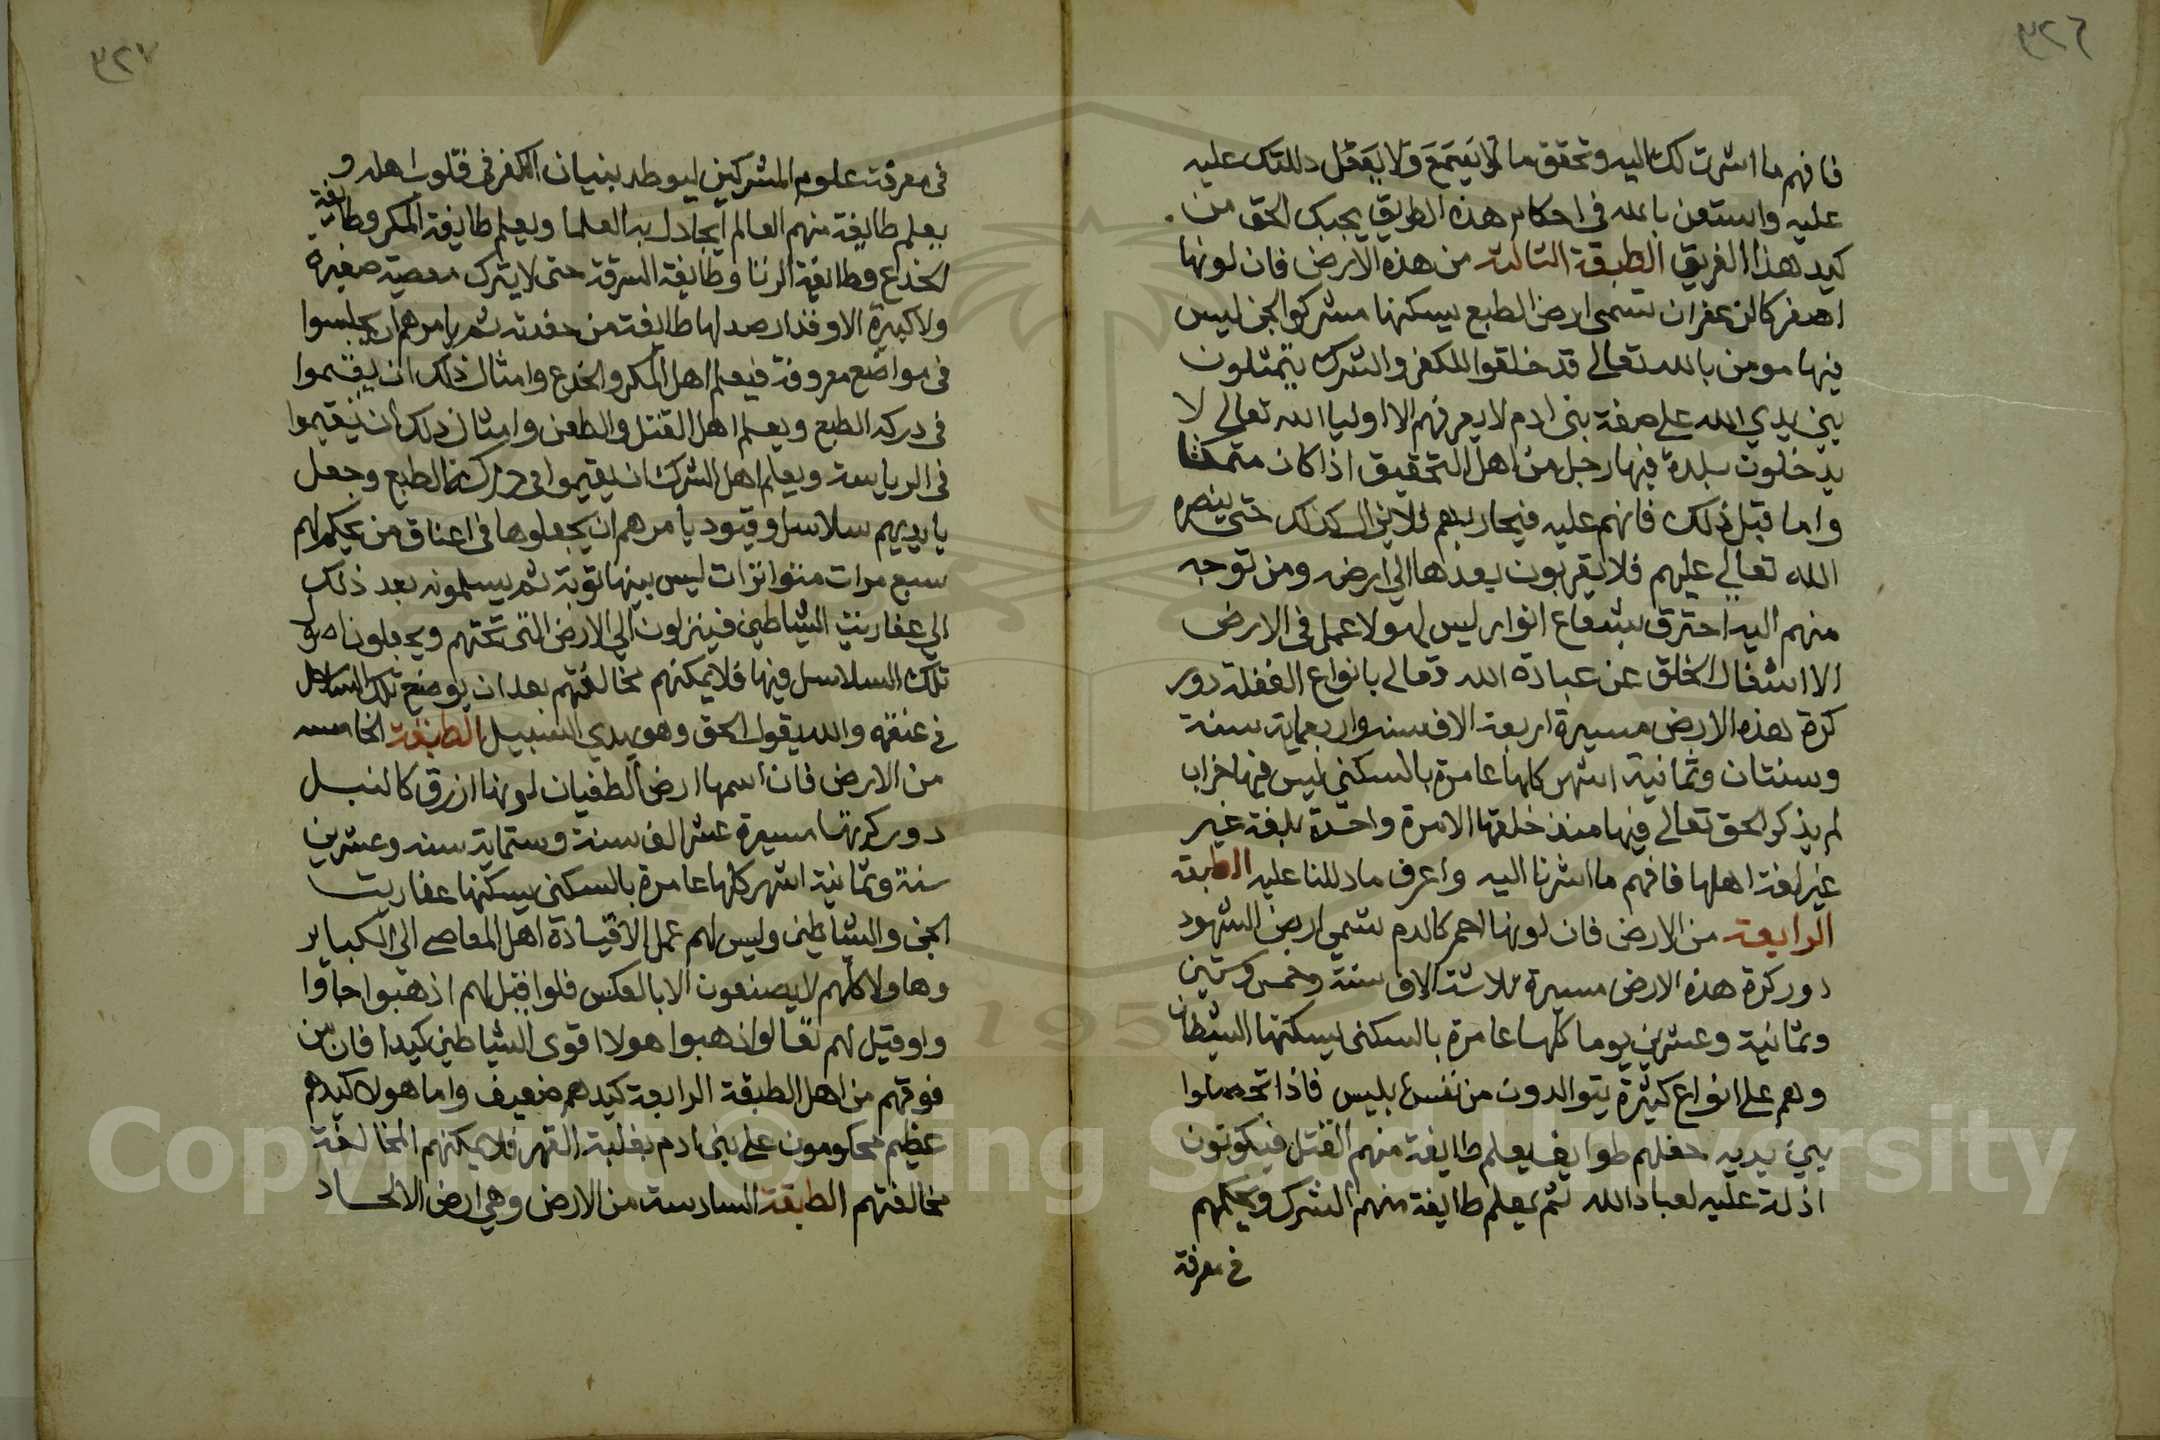 فافهم ما اشرت لك اليه وتحقق ما لا يسمع ولا يعقل دللتك عليه
عليه واستعن بالله في احكام هذه الطريق يجبك الحق من
كيد هذا الفريق الطبقة الثالثة من هذه الارض فان لونها
اصفر كالزعفران تسمى ارض الطبع يسكنها مشركوا الجن ليس
فيها مومن بالله تعالى قد خلقوا للكفر والشرك يتمثلون
بين يدي الله على صفة بني ادم لا يعرفهم الا اوليا الله تعالى لا
يدخلون بلدة فيها رجل من اهل التحقيق اذا كان متمكنا
واما قبل ذلك فانهم عليه فيحاربهم فلا يزال كذلك حتى ينصره
الله تعالى عليهم فلا يقربون بعدها الى ارض ومن توجه
منهم اليه احترق بشعاع انواره ليس لهولا عمل في الارض
الا اشغال الخلق عن عبادة الله تعالى بانواع الغفلة دور
كرة هذه الارض مسيرة اربعة الاف سنه واربعماية سنة
وسنتان وثمانية اشهر كلها عامرة بالسكنى ليس فيها خراب
لم يذكر الحق تعالى فيها منذ خلقها الا مرة واحدة بلغة غير
غير لغة اهلها فافهم ما اشرنا اليه واعرف ما دللنا عليه الطبقة
الرابعة من الارض فان لونها احمر كالدم تسمى ارض الشهود
دور كرة هذه الارض مسيرة ثلاثة الاف سنة وخمس وستين
وثمانية وعشرين يوما كلها عامرة بالسكنى يسكنها الشيطان
وهم على انواع كثيرة يتوالدون من نفس ابليس فاذا تحصلوا
بين يديه جعلهم طوايف يعلم طايفة منهم القتل فيكونون
اذلة عليه لعباد الله ثم يعلم طايفة منهم الشرك ويحكمهم
في معرفة
في معرفة علوم المشركين ليوطد بنيان الكفر في قلوب اهله و
يعلم طايفة منهم العالم ايجادل به العلما ويعلم طايفة المكر وطايفة
الخداع وطايفة الزنا وطايفة السرقة حتى لا يترك معصية صغيرة
ولا كبيرة الا وقد ارصد لها طايفة من حفدته ثم يامرهم ان يجلسوا
في مواضع معروفة فيعلم اهل المكر والخدع وامثال ذلك ان يقيموا
في دركه الطبع ويعلم اهل القتل والطعن وامثال ذلك ان يقيموا
في الرياسة ويعلم اهل الشرك ان يقيموا في الطبع وجعل
بايديهم سلاسل وقيود يامرهم ان يجعلوها في اعناق من يحكم لهم
سبع مرات متواترات ليس بينها توبة ثم يسلمونه بعد ذلك
الى عفاريت الشياطين فينزلون الى الارض التي تحتهم ويجعلون اصول
تلك السلاسل فيها فلا يمكنهم مخالفتهم بعد ان يوضع تلك السلاسل
في عنقه والله يقول الحق وهو يهدي السبيل الطبقة الخامسه
من الارض فان اسمها ارض الطغيان لونها ازرق كالنيل
دور كرتها مسيرة عشر الف سنة وستماية سنه وعشرين
سنة وثمانية اشهر كلها عامرة بالسكنى يسكنها عفاريت
الجن والشياطين وليس لهم عمل الا قيادة اهل المعاصي الى الكباير
وهاولا كلهم لا يصنعون الا بالعكس فلو قيل لهم اذهبوا جاوا
واو قيل لهم تعالوا ذهبوا هولا اقوى الشياطين كيدا فان من
فوقهم من اهل الطبقة الرابعة كيدهم ضعيف واما هولا كيدهم
عظيم محكومون على بني ادم بغلبة القهر فلا يمكنهم المخالفة
مخالفتهم الطبقة السادسة من الارض وهي ارض الالحاد
Copyright © King Saud University